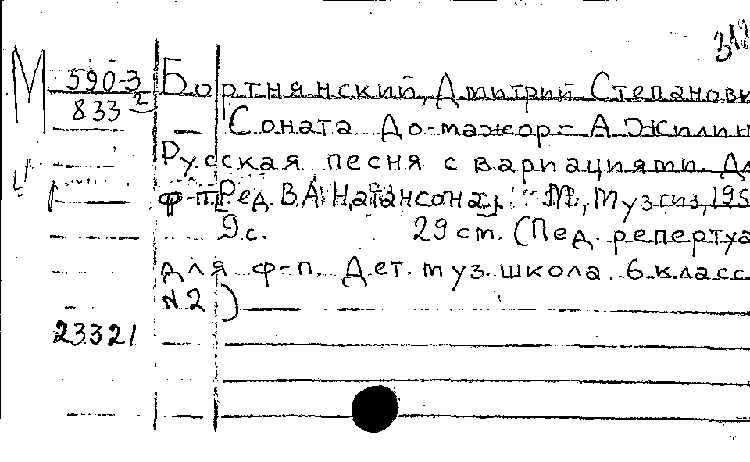 М 590-3 Бортнянский, Дмитрий Степанови
833²
Соната До-мажор= А Жилин
Русская песня с вариациями. Дл
ф-п Ред. В.А Натансона. М., Музгиз, 195
9с. 29 cm. (Пед. репертуа
для ф-п. Дет. муз. школа. 6 класс
N2)
23321